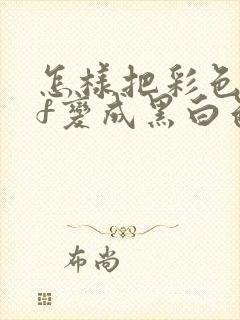 怎樣把彩色
f變成黑白
布尚